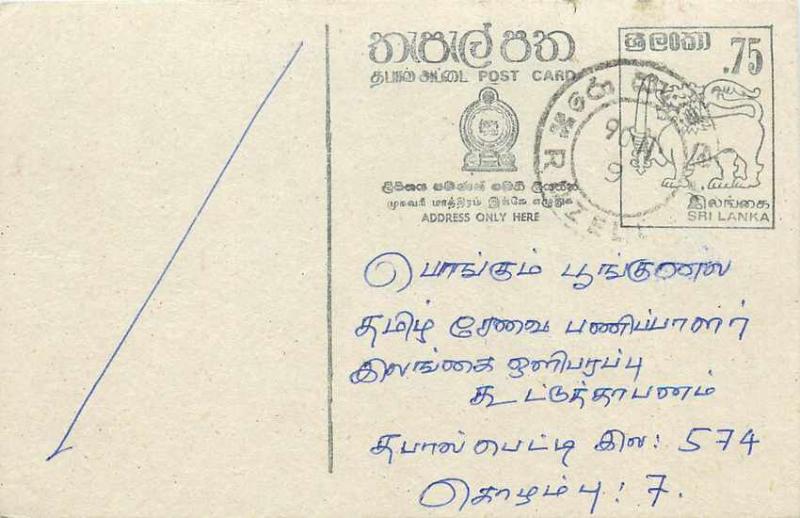 තැපැල් පත
தபால் அட்டை POST CARD
ලිපිනය පමණක් මෙහි ලියන්න
முகவரி மாத்திரம் இங்கே எழுதுக
ADDRESS ONLY HERE
ශ්‍රී ලංකා
.75
இலங்கை
SRI LANKA
90
9
பொங்கும் பூங்குனல
தமிழ் சேவை பணிப்பாளர்
இலங்கை ஒளிபரப்பு
கூட்டுத்தாபனம்
தபால் பெட்டி இல: 574
கொழம்பு: 7.